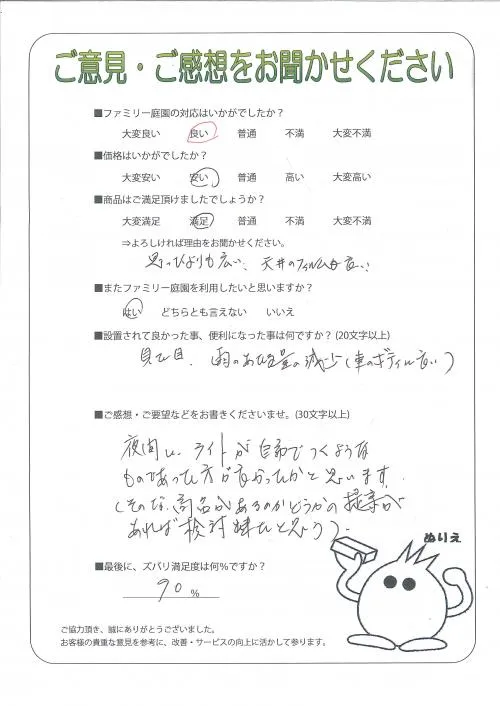 ご意見・ご感想をお聞かせください
■ファミリー庭園の対応はいかがでしたか？
大変良い 良い 普通 不満 大変不満
■価格はいかがでしたか？
大変安い 安い 普通 高い 大変高い
■商品はご満足頂けましたでしょうか？
大変満足 満足 普通 不満 大変不満
⇒よろしければ理由をお聞かせください。
思ったよりも広い、天井のフィルムが良い
■またファミリー庭園を利用したいと思いますか？
はい どちらとも言えない いいえ
■設置されて良かった事、便利になった事は何ですか？(20文字以上)
見た目、雨のあたる量の減少(車のボディに良い)
■ご感想・ご要望などをお書きくださいませ。(30文字以上)
夜間に、ライトが自動でつくような
ものであった方が良かったかと思います。
(そのような商品があるのかどうかの提案が
あれば検討したと思う)。
ぬりえ
■最後に、ズバリ満足度は何％ですか？
90 %
ご協力頂き、誠にありがとうございました。
お客様の貴重な意見を参考に、改善・サービスの向上に活かして参ります。